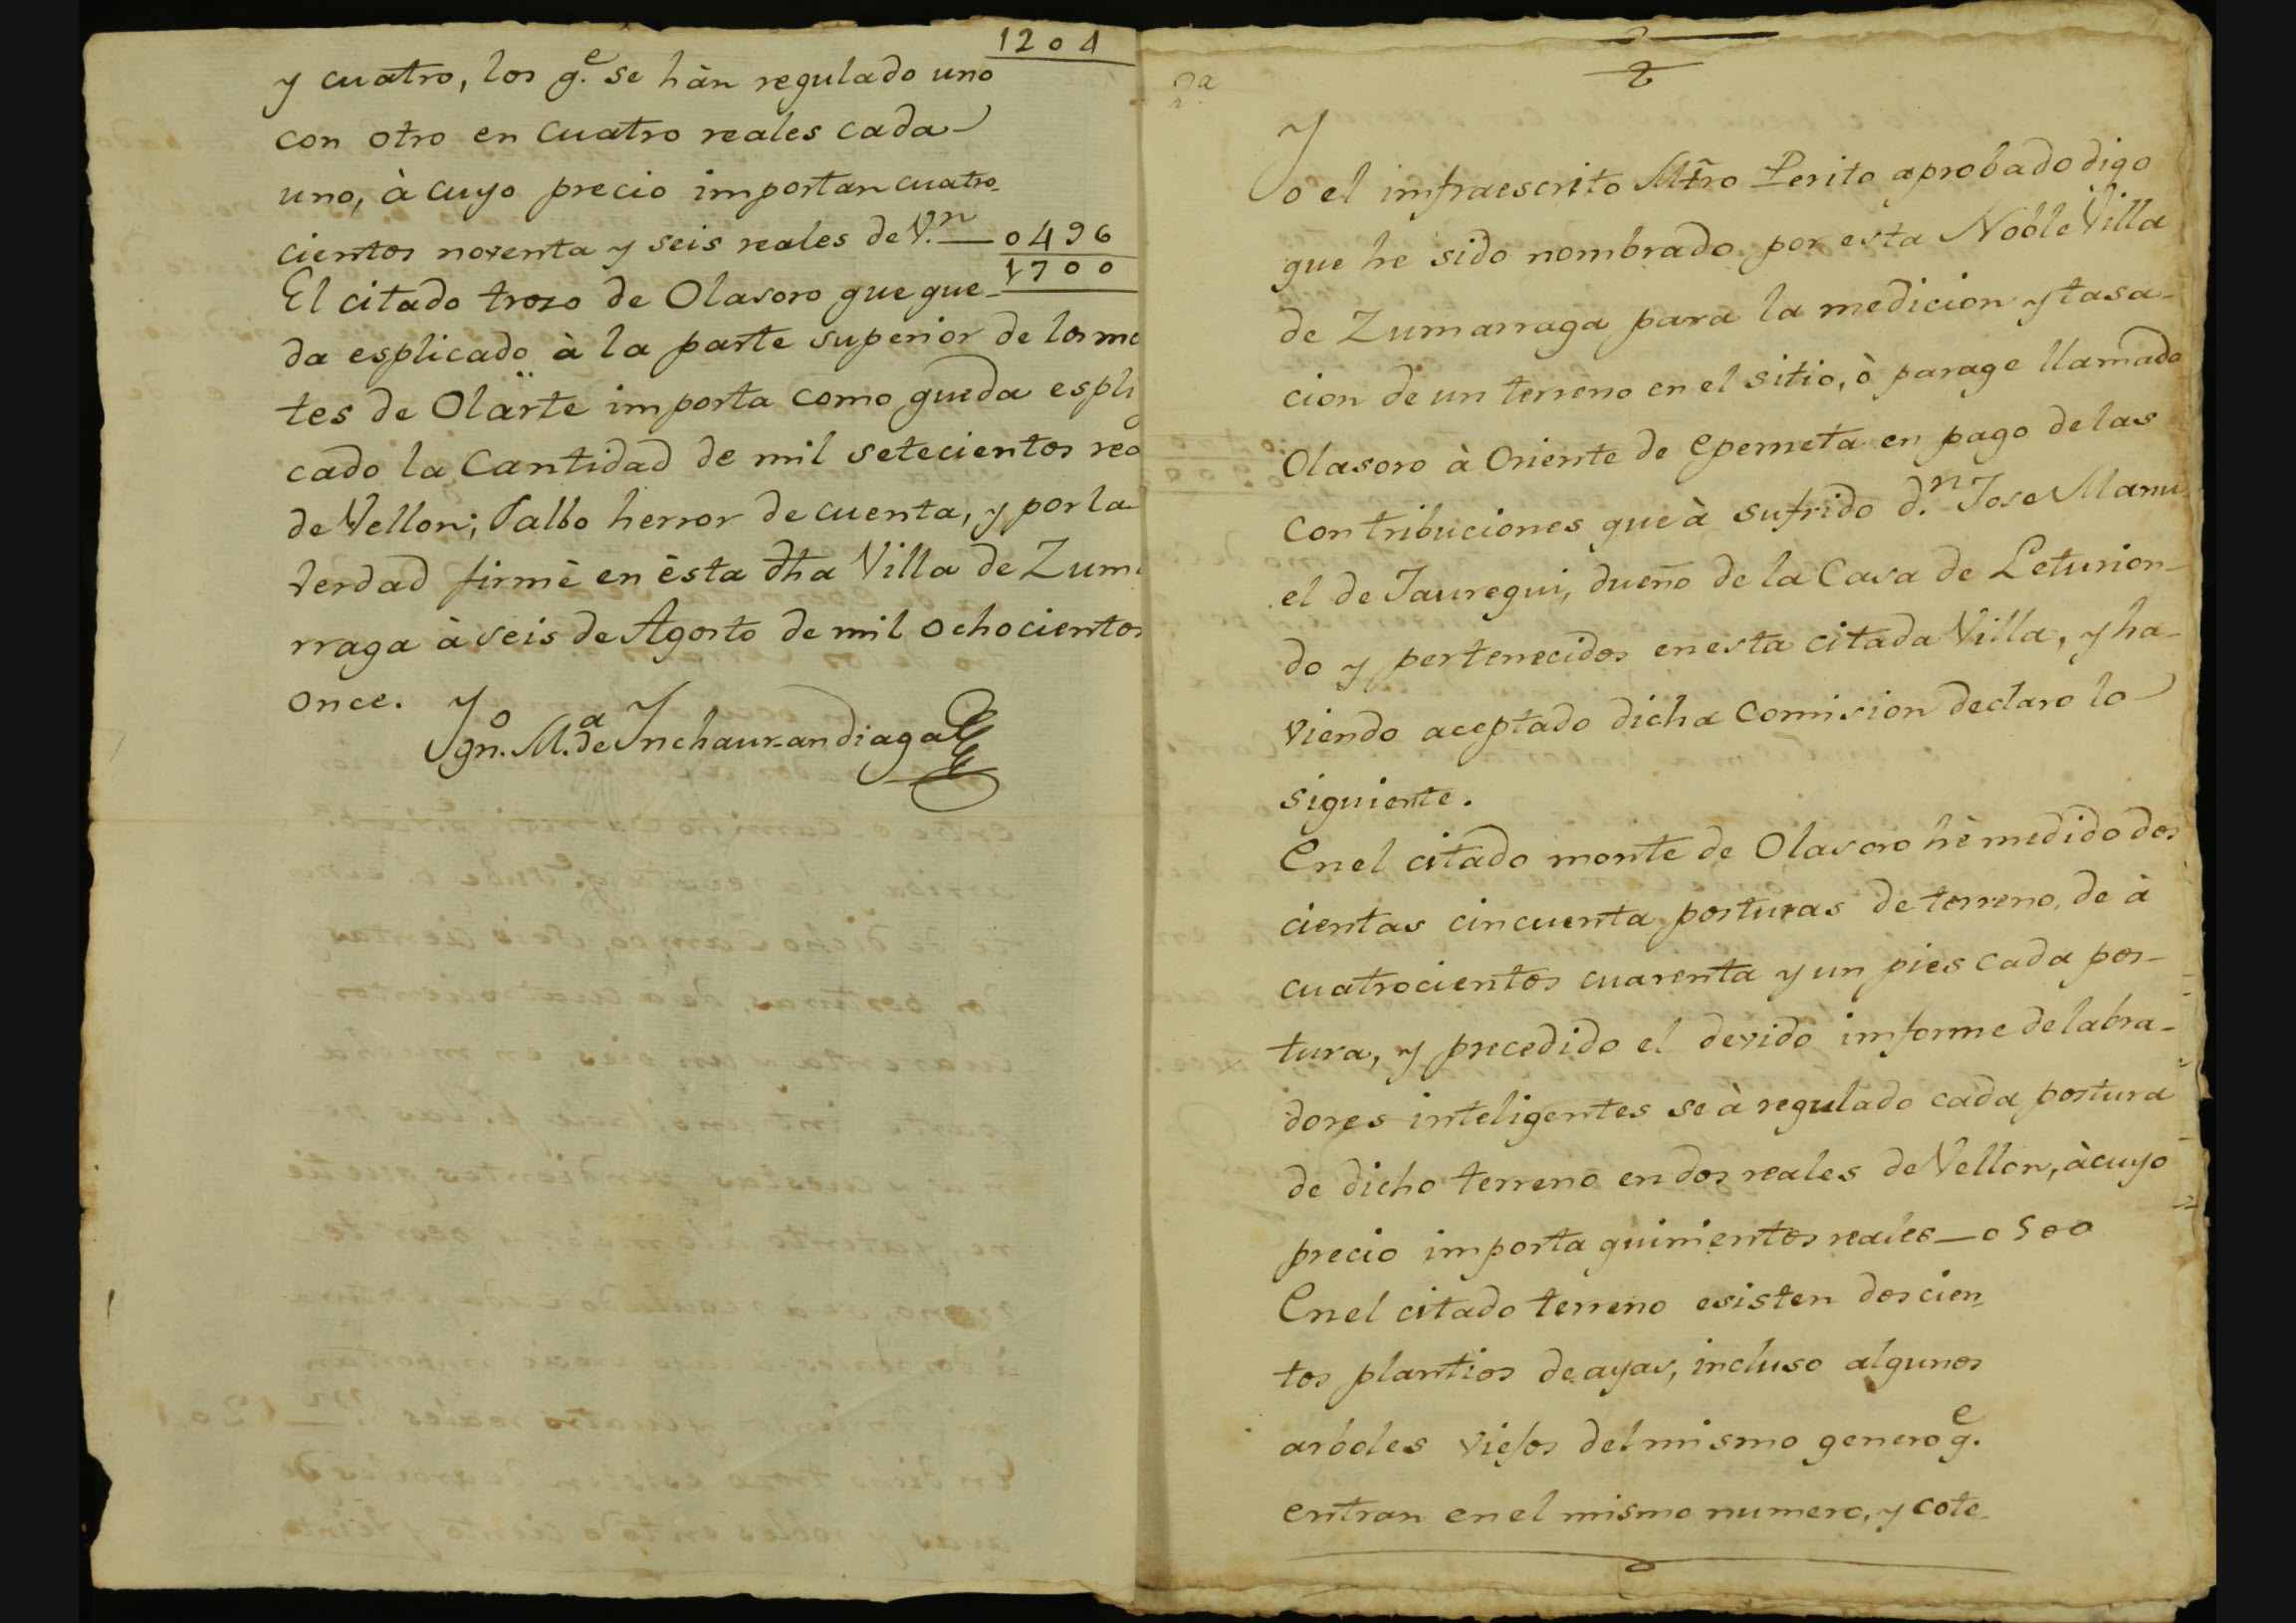 1204
y cuatro, los q.e se hàn regulado uno
con otro en cuatro reales cada
uno, à cuyo precio importan cuatro-
cientos noventa y seis reales de V.n — 0496
1700
El citado trozo de Olasoro que que-
da esplicado à la parte superior de los mo
tes de Olarte importa como queda espli
cado la Cantidad de mil setecientos rea
de Vellon; Salbo herror de cuenta, y por la
Verdad firmè en èsta dha Villa de Zuma
rraga à seis de Agosto de mil ochocientos
once.
Ygn.o M.a de Ynchaurandiaga
2.a
Yo el infraescrito Mtro Perito aprobado digo
que he sido nombrado por esta Noble Villa
de Zumarraga para la medicion y tasa-
cion de un terreno en el sitio, ò parage llamado
Olasoro à Oriente de Eperneta en pago de las
Contribuciones que à sufrido d.n Jose Manu-
el de Jauregui, dueño de la Casa de Leturion-
do y pertenecidos en esta citada Villa, y ha-
viendo aceptado dicha Comision declaro lo
siguiente.
En el citado monte de Olasoro hè medido dos
cientas cincuenta posturas de terreno, de à
cuatrocientos cuarenta y un pies cada pos-
tura, y precedido el devido informe de labra-
dores inteligentes se à regulado cada postura
de dicho terreno en dos reales de Vellon, à cuyo
precio importa quinientos reales — 0500
En el citado terreno esisten doscien-
tos plantios de ayas, incluso algunos
arboles viejos del mismo genero q.e
entran en el mismo numero, y cote-